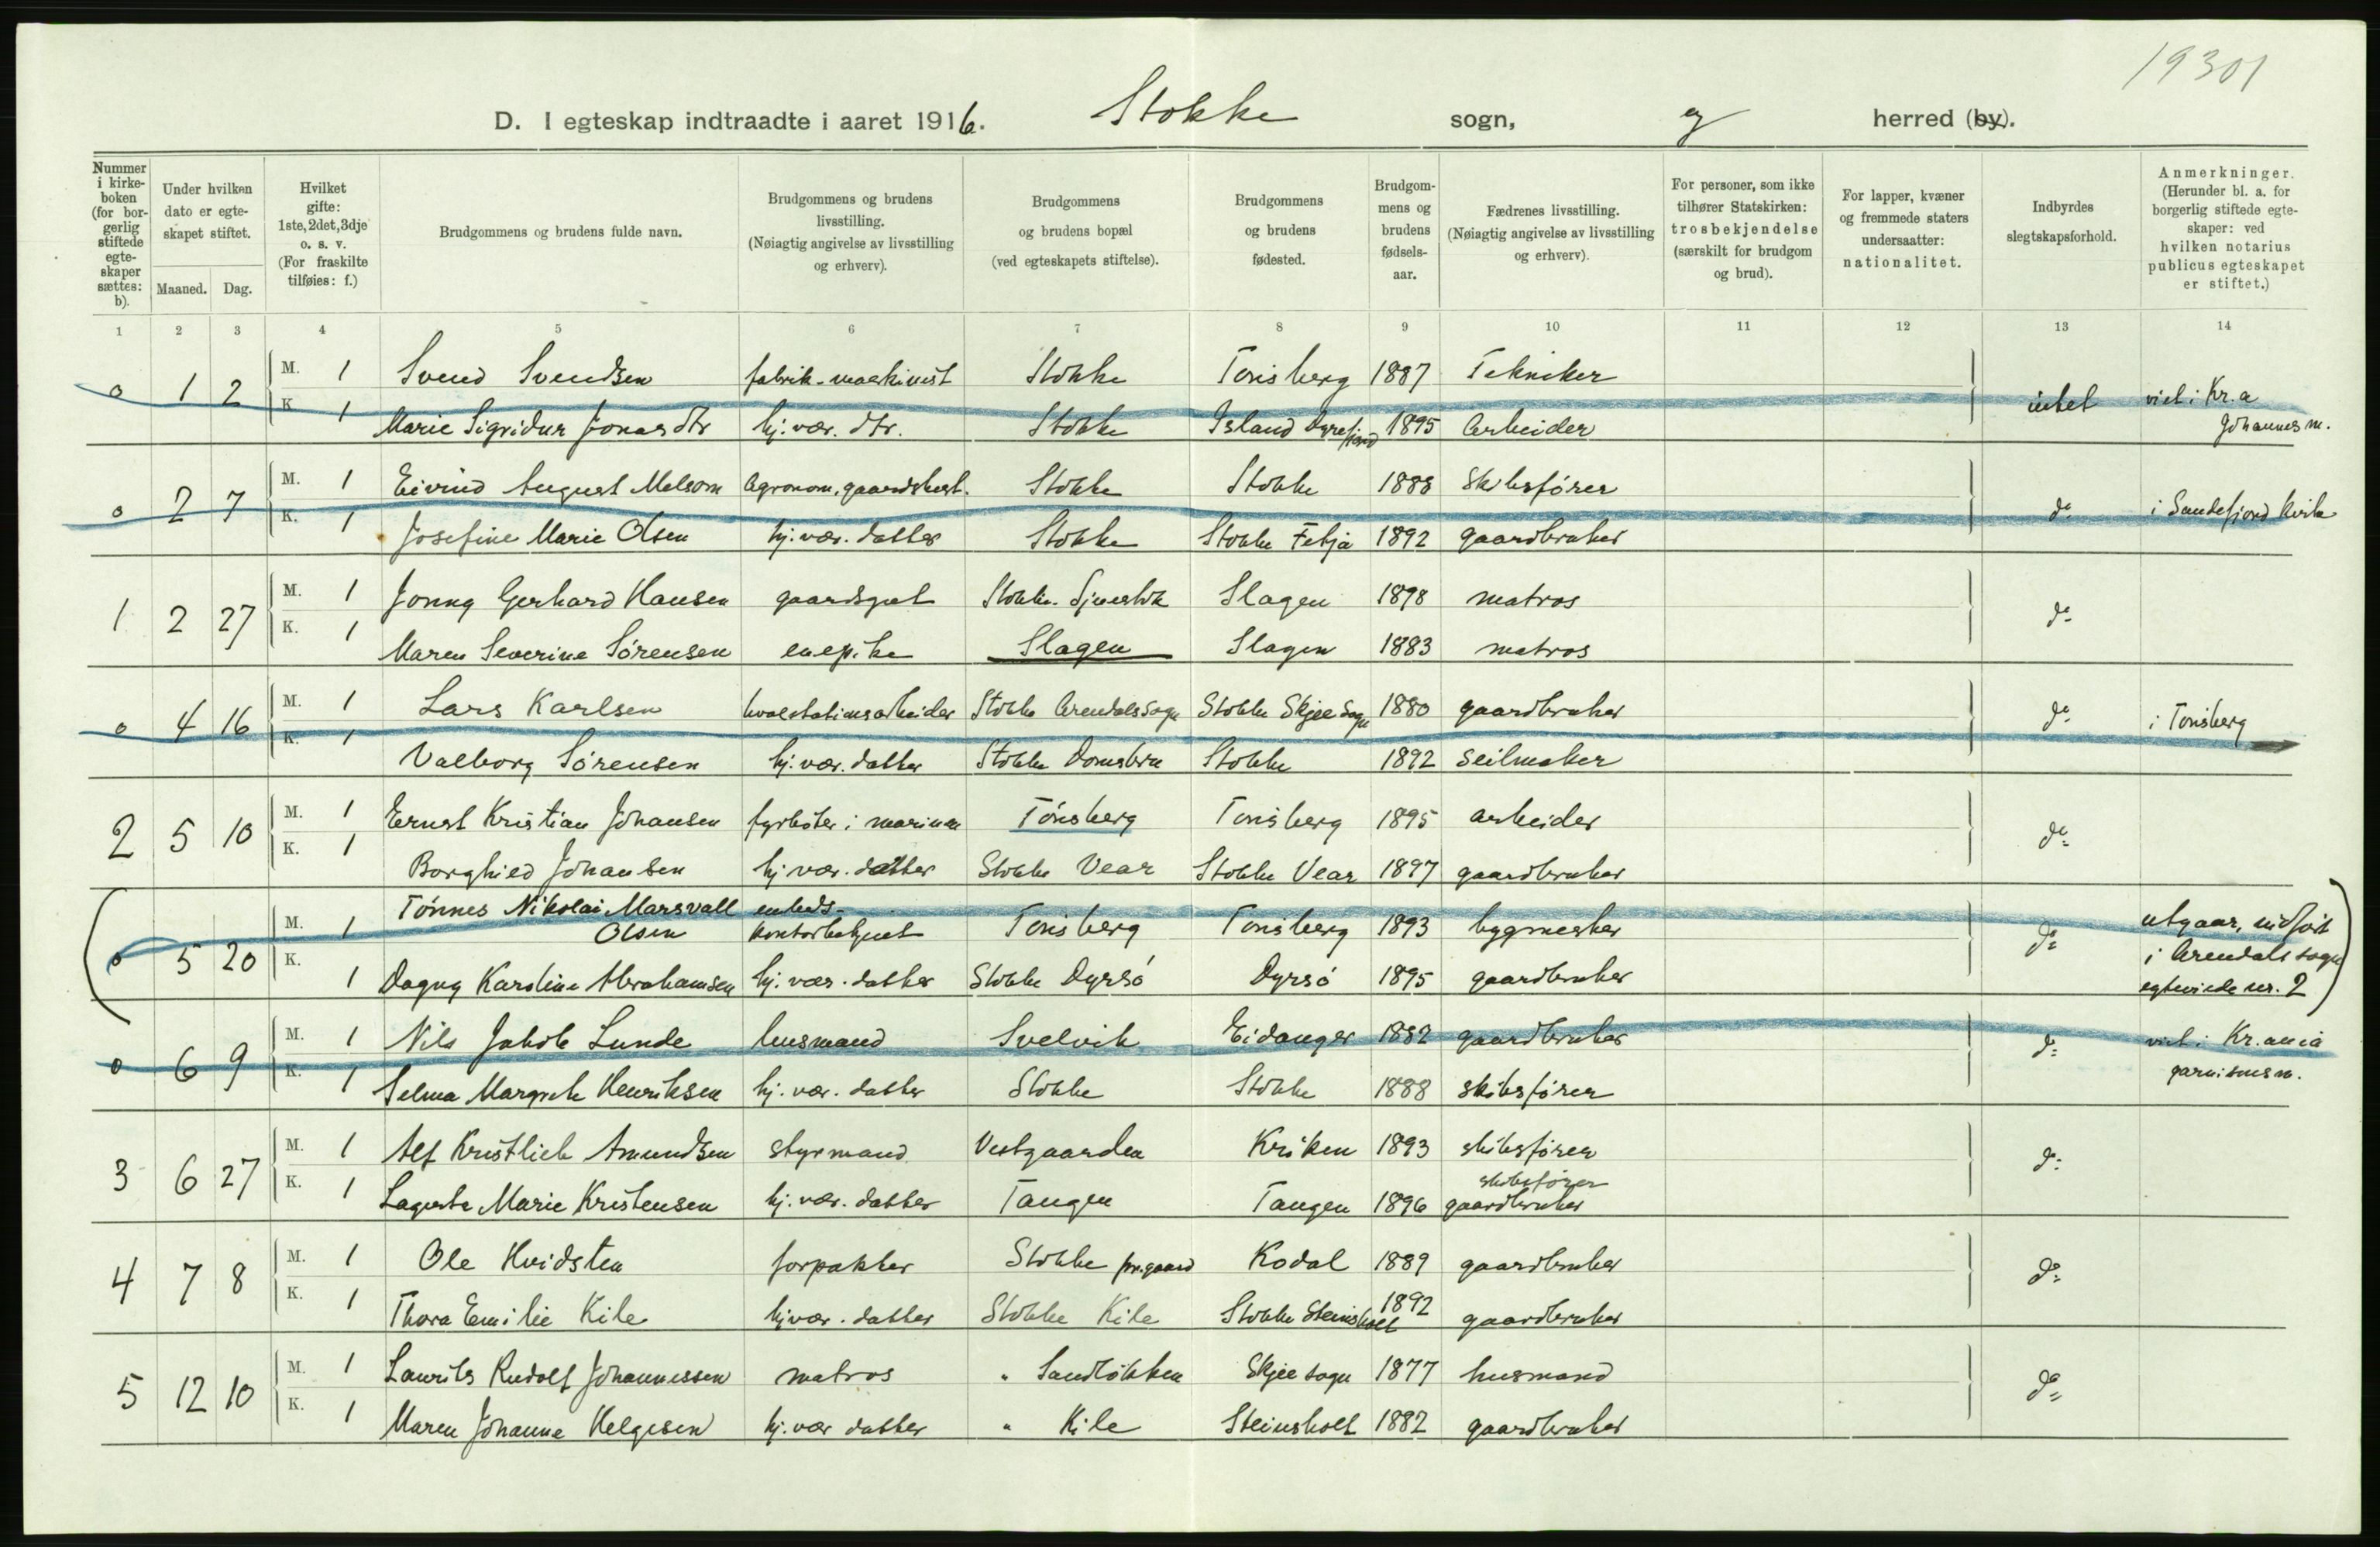 19301
D. I egteskap indtraadte i aaret 1916. Stokke sogn, og herred (by).
Nummer i kirkeboken (for borgerlig stiftede egteskaper sættes: b).
Under hvilken dato er egteskapet stiftet.
Maaned. Dag.
Hvilket gifte: 1ste, 2det, 3dje o. s. v. (For fraskilte tilføies: f.)
Brudgommens og brudens fulde navn.
Brudgommens og brudens livsstilling. (Nøiagtig angivelse av livsstilling og erhverv).
Brudgommens og brudens bopæl (ved egteskapets stiftelse).
Brudgommens og brudens fødested.
Brudgommens og brudens fødselsaar.
Fædrenes livsstilling. (Nøiagtig angivelse av livsstilling og erhverv).
For personer, som ikke tilhører Statskirken: trosbekjendelse (særskilt for brudgom og brud).
For lapper, kvæner og fremmede staters undersaatter: nationalitet.
Indbyrdes slegtskapsforhold.
Anmerkninger. (Herunder bl. a. for borgerlig stiftede egteskaper: ved hvilken notarius publicus egteskapet er stiftet.)
1 2 3 4 5 6 7 8 9 10 11 12 13 14
o 1 2 M. 1 Svend Svendsen fabrik-maskinist Stokke Tønsberg 1887 Tekniker intet viet i Kr.a
K. 1 Marie Sigridur Jonasdtr hj. vær. dtr. Stokke Island Dyrefjord 1895 Arbeider Johannes m.
o 2 7 M. 1 Eivind August Melsom Agronom, gaardsbest. Stokke Stokke 1888 Skibsfører do i Sandefjord kirke
K. 1 Josefine Marie Olsen hj. vær. datter Stokke Stokke 1892 gaardbruker
1 2 27 M. 1 Jonny Gerhard Hansen gaardsgut Stokke Slagen 1898 matros do
K. 1 Maren Severine Sørensen enepike Slagen Slagen 1883 matros
o 4 16 M. 1 Lars Karlsen hvalstationsarbeider Stokke Arendals sogn Stokke Skjee sogn 1880 gaardbruker do i Tønsberg
K. 1 Valborg Sørensen hj. vær. datter Stokke Stokke 1892 Seilmaker
2 5 10 M. 1 Ernst Kristian Johansen fyrbøter i marinen Tønsberg Tønsberg 1895 arbeider do
K. 1 Borghild Johansen hj. vær. datter Stokke Vear Stokke Vear 1897 gaardbruker
o 5 20 M. 1 Tønnes Nikolai Marsvall Olsen kontorbetjent Tønsberg Tønsberg 1893 bygmester do utgaar, indført
K. 1 Dagny Karoline Abrahamsen hj. vær. datter Stokke Dyrsø Dyrsø 1895 gaardbruker i Arendals sogn
egteviede nr. 2
o 6 9 M. 1 Nils Jakob Lunde husmand Svelvik Eidanger 1882 gaardbruker do viet i Kr.ania
K. 1 Selma Margrete Henriksen hj. vær. datter Stokke Stokke 1888 skibsfører garnisons m.
3 6 27 M. 1 Alf Kristlieb Amundsen styrmand Vestgaarden Kriken 1893 skibsfører do
skibsfører
K. 1 Lagerta Marie Kristensen hj. vær. datter Tangen Tangen 1896 gaardbruker
4 7 8 M. 1 Ole Hvidsten forpakter Stokke pr.gaard Kodal 1889 gaardbruker do
K. 1 Thora Emilie Kile hj. vær. datter Stokke Kile Stokke Steinsholt 1892 gaardbruker
5 12 10 M. 1 Laurits Rudolf Johannessen matros " Sandløkken Skjee sogn 1877 husmand do
K. 1 Maren Johanne Helgesen hj. vær datter " Kile Steinsholt 1882 gaardbruker